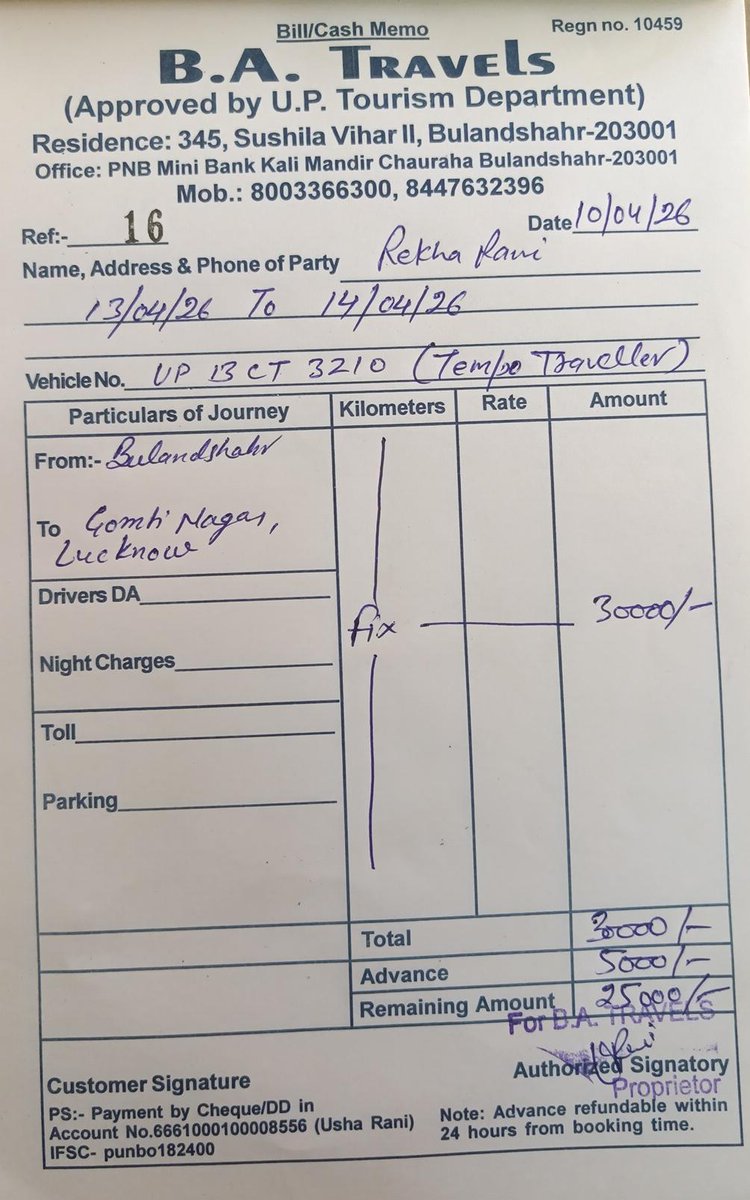 Bill/Cash Memo
Regn no. 10459
B.A. TRAVELS
(Approved by U.P. Tourism Department)
Residence: 345, Sushila Vihar II, Bulandshahr-203001
Office: PNB Mini Bank Kali Mandir Chauraha Bulandshahr-203001
Mob.: 8003366300, 8447632396
Ref:- 16
Date 10/04/26
Name, Address & Phone of Party Rekha Rani
13/04/26 To 14/04/26
Vehicle No. UP 13 CT 3210 (Tempo Traveller)
Particulars of Journey Kilometers Rate Amount
From:- Bulandshahr
To Gomti Nagar,
Lucknow
Drivers DA
fix 30000/-
Night Charges
Toll
Parking
Total 30000/-
Advance 5000/-
Remaining Amount 25000/-
For B.A. TRAVELS
Authorized Signatory
Proprietor
Customer Signature
PS:- Payment by Cheque/DD in
Account No.6661000100008556 (Usha Rani)
IFSC- punbo182400
Note: Advance refundable within
24 hours from booking time.